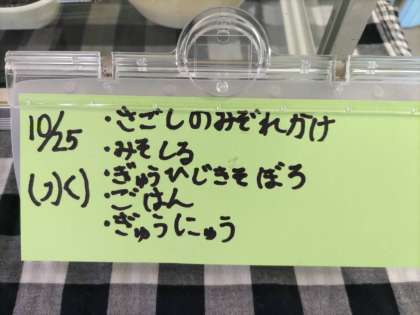 10/25
(火)
・さごしのみぞれかけ
・みそしる
・ぎゅうひじきそぼろ
・ごはん
・ぎゅうにゅう